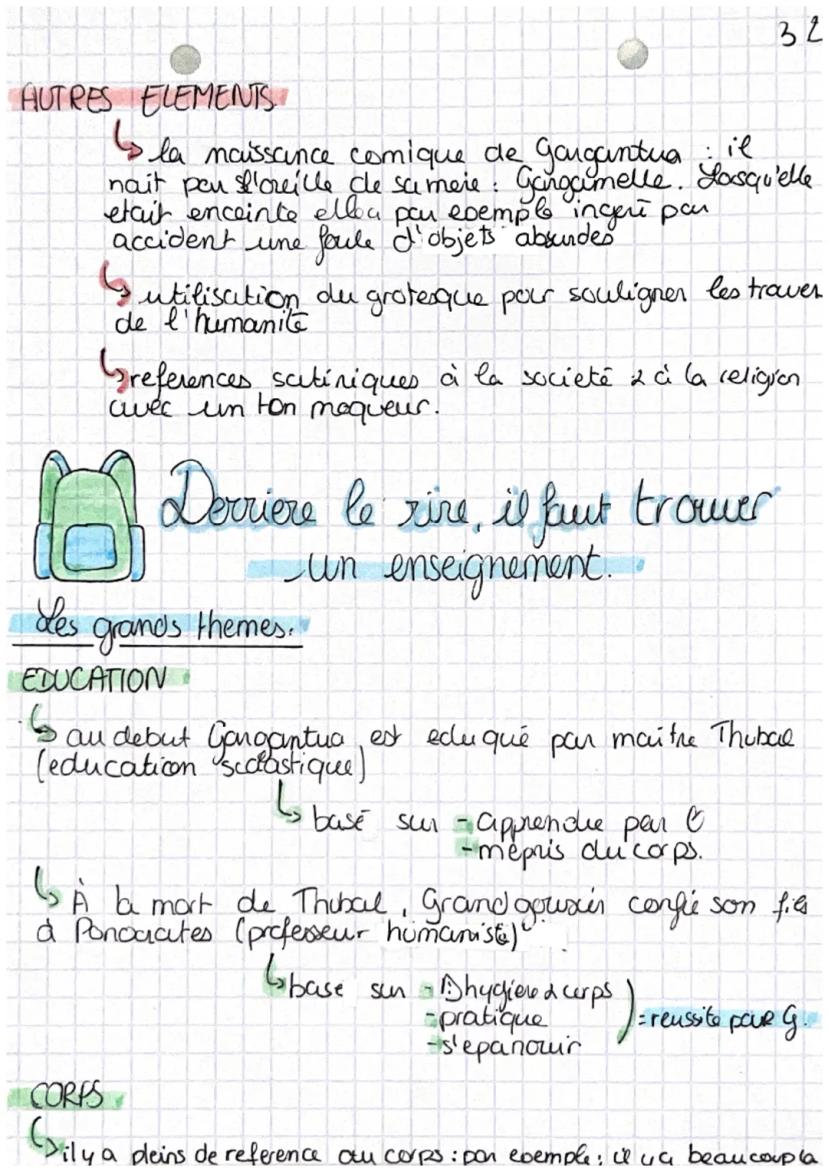 32
AUTRES ELEMENTS
↳ la naissance comique de Gargantua : il
nait par l'oreille de sa mere : Gargamelle. Lorsqu'elle
etait enceinte elle a par exemple ingeré par
accident une foule d'objets absurdes
↳ utilisation du grotesque pour souligner les traver
de l'humanité
↳ references satiriques à la societé & à la religion
avec un ton moqueur.
Derriere le rire, il faut trouver
un enseignement.
Les grands themes.
EDUCATION
↳ au debut Gargantua est eduqué par maitre Thubal
(education scolastique)
↳ basé sur - apprendre par ♡
- mepris du corps.
↳ À la mort de Thubal, Grandgousier confie son fils
à Ponocrates (professeur humaniste)
↳ base sur - hygiene & corps
- pratique
- s'epanouir
= reussite pour G.
CORPS
↳ il y a pleins de reference au corps : par exemple : il y a beaucoup la